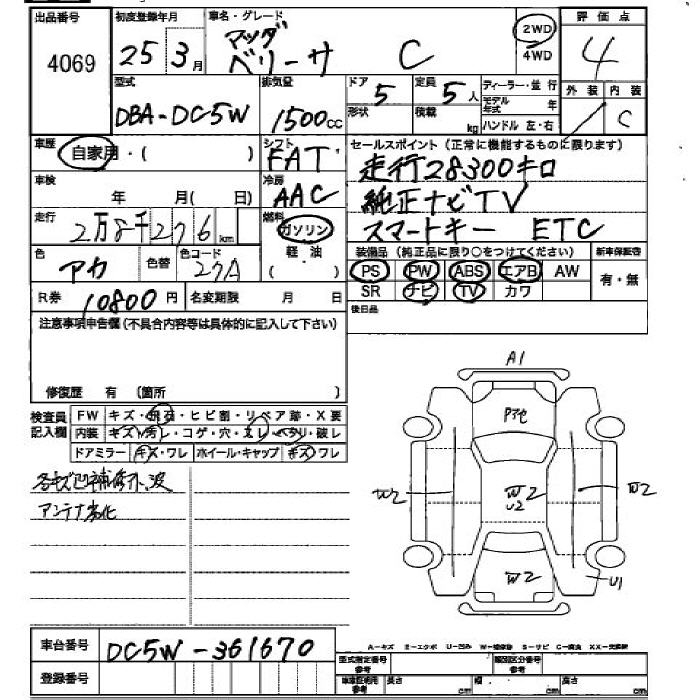 出品番号 初度登録年月 車名・グレード 2WD 評価点
4069 25 3月 マツダ ベリーサ C 4WD 4
型式 排気量 ドア 定員 ディーラー・並行 外装 内装
DBA-DC5W 1500cc 5 5人 モデル年式 年 C
形状 積載 kg ハンドル 左・右
車歴 自家用・( ) シフト FAT セールスポイント(正常に機能するものに限ります)
走行28300キロ
車検 年 月( 日) 冷房 AAC 純正ナビTV
走行 2万8千276km 燃料 ガソリン スマートキー ETC
色 アカ 色替 色コード 27A 軽油 ( ) 装備品(純正品に限り○をつけてください) 新車保証書
PS PW ABS エアB AW 有・無
R券 10800円 名変期限 月 日 SR ナビ TV カワ
注意事項申告欄(不具合内容等は具体的に記入して下さい) 後日品
修復歴 有 (箇所 )
検査員記入欄 FW キズ・飛石・ヒビ割・リペア跡・X要
内装 キズ・汚レ・コゲ・穴・スレ・ヘタリ・破レ
ドアミラー キズ・ワレ ホイール・キャップ キズ・ワレ
各キズ凹補修小、波
アンテナ劣化
A1
Pアセ
W2 W2 W2
U2
W2 U1
車台番号 DC5W-361670
登録番号
A-キズ E-エクボ U-凹み W-補修跡 S-サビ C-腐食 XX-交換済
型式指定番号 参考 類別区分番号 参考
車庫証明用 参考 長さ cm 幅 cm 高さ cm